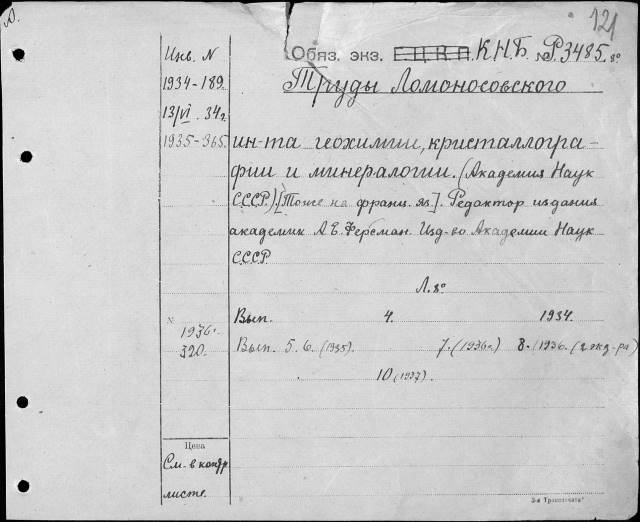 121
Инв. N Обяз. экз. Е.Ц.К.П. К.Н.Б. № Р3485. 8°
1934-189. Труды Ломоносовского
13/VI 34г.
1935-365. ин-та геохимии, кристаллогра-
фии и минералогии. (Академия Наук
СССР). [Тоже на франц. яз]. Редактор издания
академик А.Е. Ферсман. Изд-во Академии Наук
СССР.
Л. 8°
N Вып. 4. 1934.
1936г.
320. Вып. 5. 6. (1935). 7. (1936г.) 8. (1936. (2 экз-ра)
10 (1937).
Цена
См. в контр.
листе.
3-я Транспечать